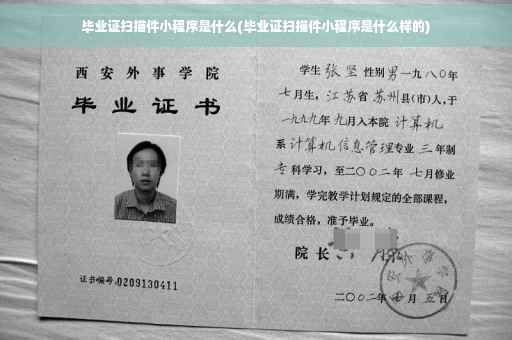 毕业证扫描件小程序是什么(毕业证扫描件小程序是什么样的)
西安外事学院
毕业证书
证书编号:0209130411
学生 张坚 性别 男 一九八〇年
七月生，江苏省 苏州县(市)人，于
一九九九年 九月入本院 计算机
系 计算机信息管理专业 三 年制
专 科学习，至二〇〇二年 七月修业
期满，学完教学计划规定的全部课程，
成绩合格，准予毕业。
院长
二〇〇二年 月 五 日